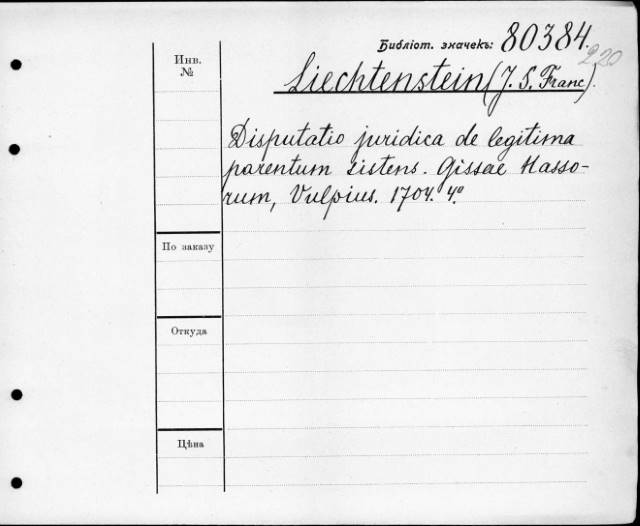 Библіот. значекъ: 80384.
220
Инв.
№
Liechtenstein (J. S. Franc).
Disputatio juridica de legitima
parentum sistens. Gissae Hasso-
rum, Vulpius. 1704. 4º
По заказу
Откуда
Цѣна